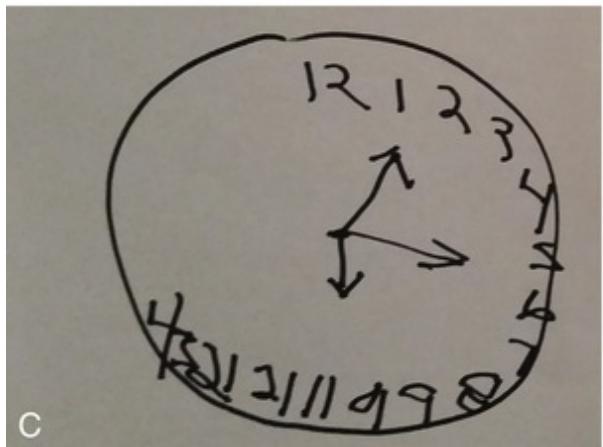 12 1 2 3
4
5
6
7
8
9
9
11
12
1
4
C